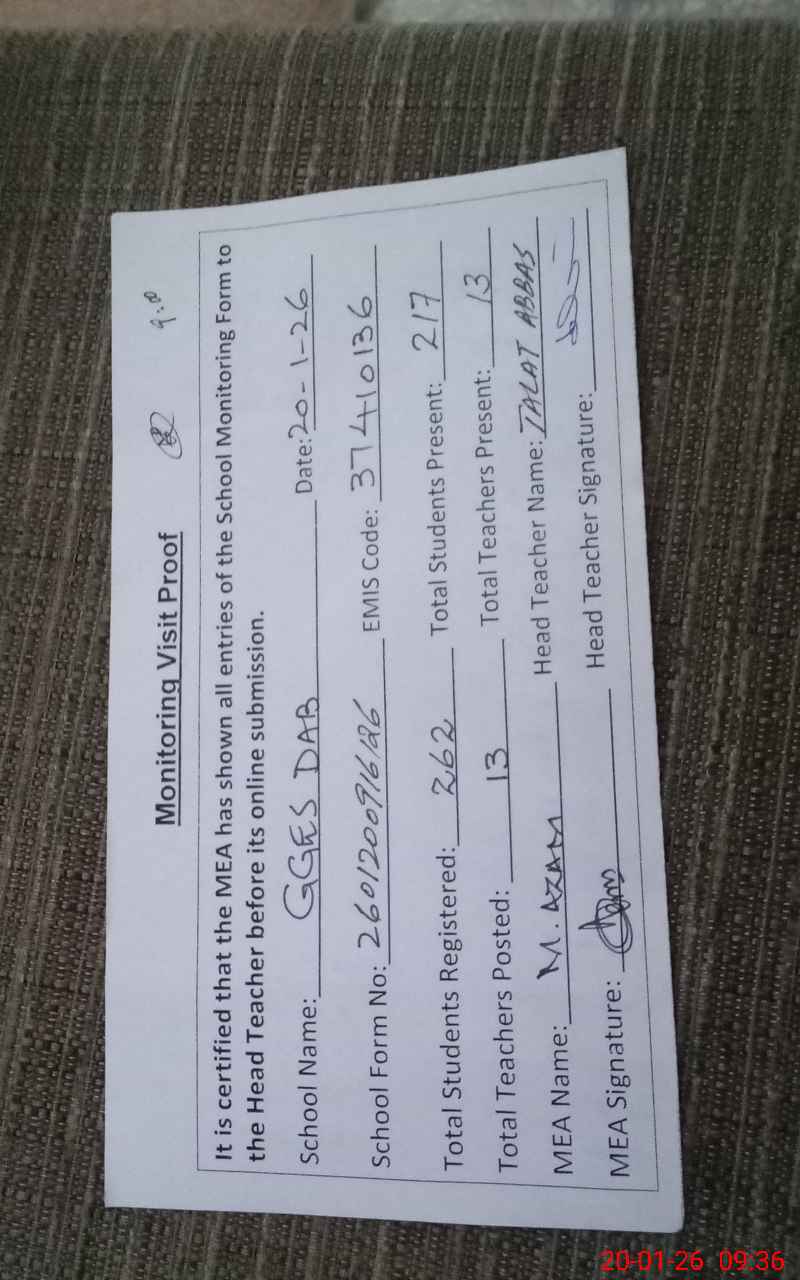 9:0
Monitoring Visit Proof
It is certified that the MEA has shown all entries of the School Monitoring Form to
the Head Teacher before its online submission.
School Name: GGES DAB Date: 20-1-26
School Form No: EMIS Code: 37410136
Total Students Registered: 262 Total Students Present: 217
Total Teachers Posted: 13 Total Teachers Present: 13
MEA Name: M. AZAM Head Teacher Name: TALAT ABBAS
MEA Signature: Head Teacher Signature:
20-01-26 09:36